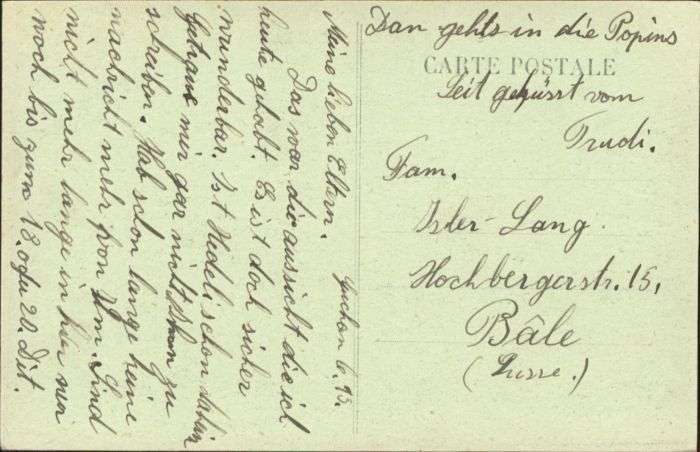 Luchon 6. 
Meine lieben Eltern.
Das war die aussicht die ich
heute gehabt. Es ist doch sicher
wunderbar. Ist Hedeli schon
Getraue mir gar nicht zu
schreiben. Hab schon lange keine
nachricht mehr von Ihm. Sind
nicht mehr lange in hier nur
noch bis zum 18. oder 20. Dit.
Dan gehts in die Popins
CARTE POSTALE
Seit geküsst vom
Trudi.
Fam.
Isler-Lang
Hochbergerstr. 15,
Bâle
(Suisse.)